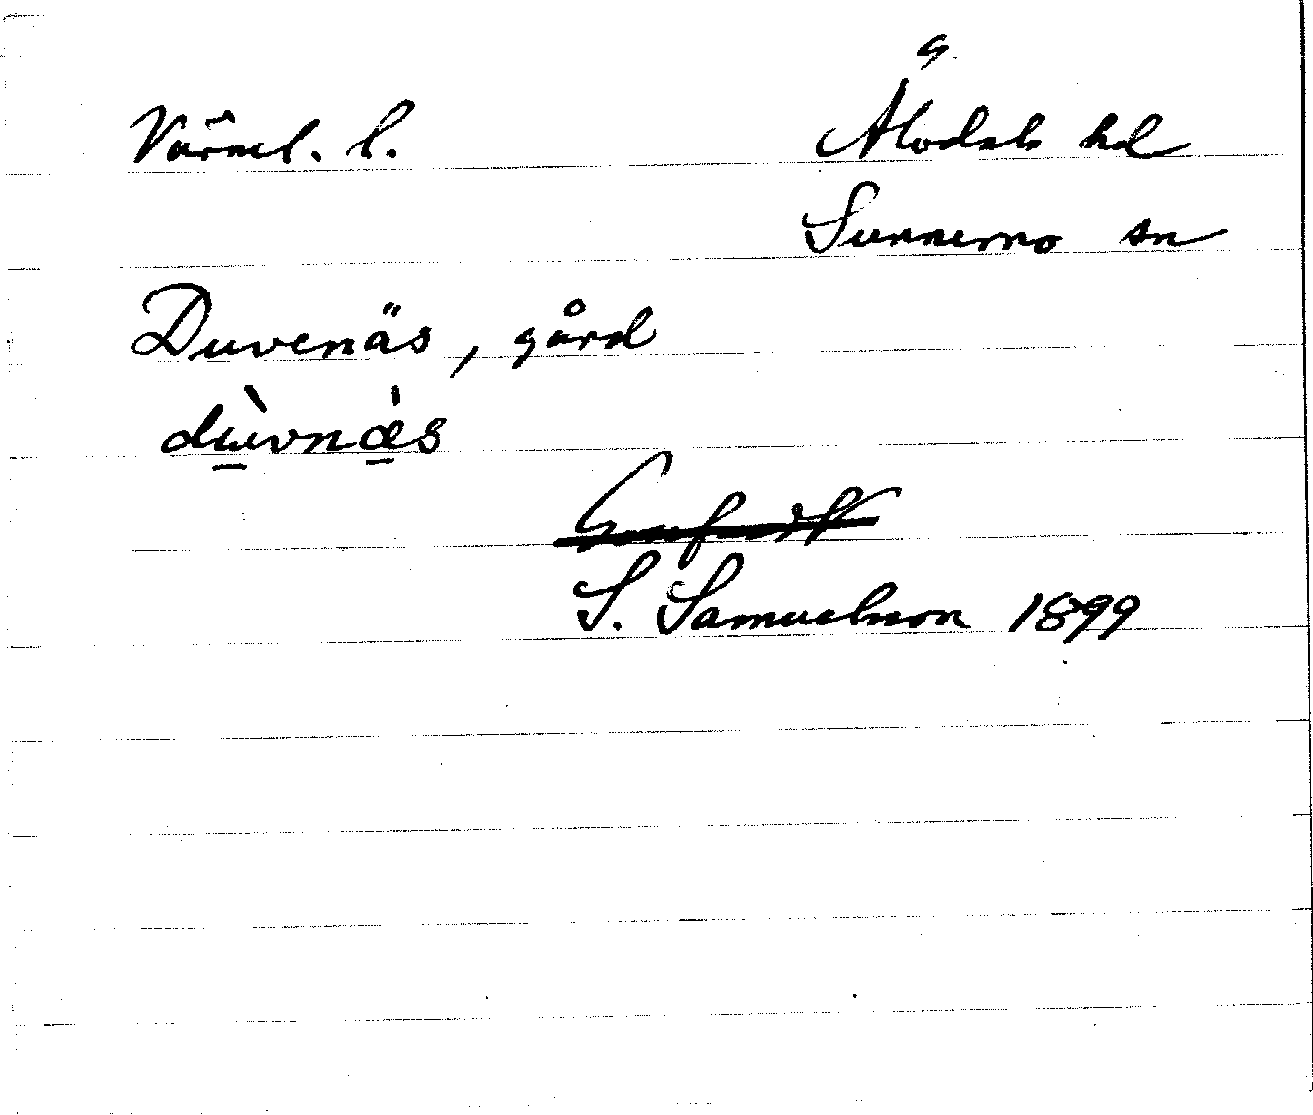 Värml. l. Älvdals hd
Sunnemo sn
Duvenäs, gård
dùvnæ̀s
S. Samuelsson 1899